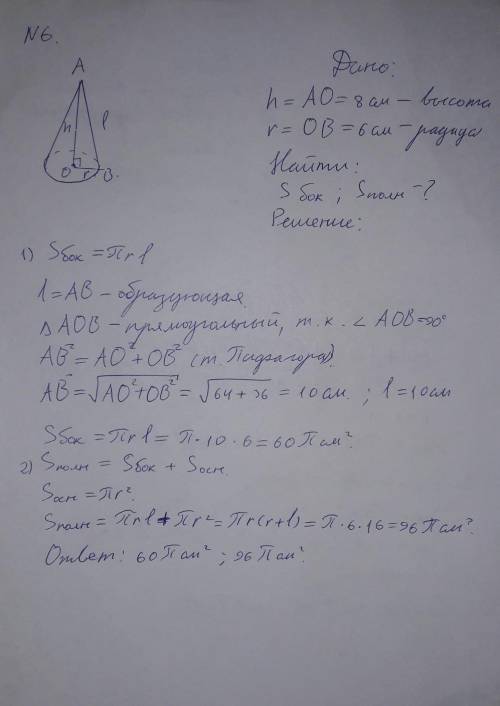 N6.
A
h
l
O
r
B.
Дано:
h = AO = 8 см – высота
r = OB = 6 см – радиус
Найти:
Sбок ; Sполн – ?
Решение:
1) Sбок = πrl
l = AB – образующая.
△ AOB – прямоугольный, т.к. ∠ AOB = 90°
AB² = AO² + OB² (т. Пифагора).
AB = √AO² + OB² = √64 + 36 = 10 см. ; l = 10 см
Sбок = πrl = π · 10 · 6 = 60π см².
2) Sполн = Sбок + Sосн.
Sосн = πr².
Sполн = πrl + πr² = πr(r+l) = π · 6 · 16 = 96π см².
Ответ: 60π см² ; 96π см².